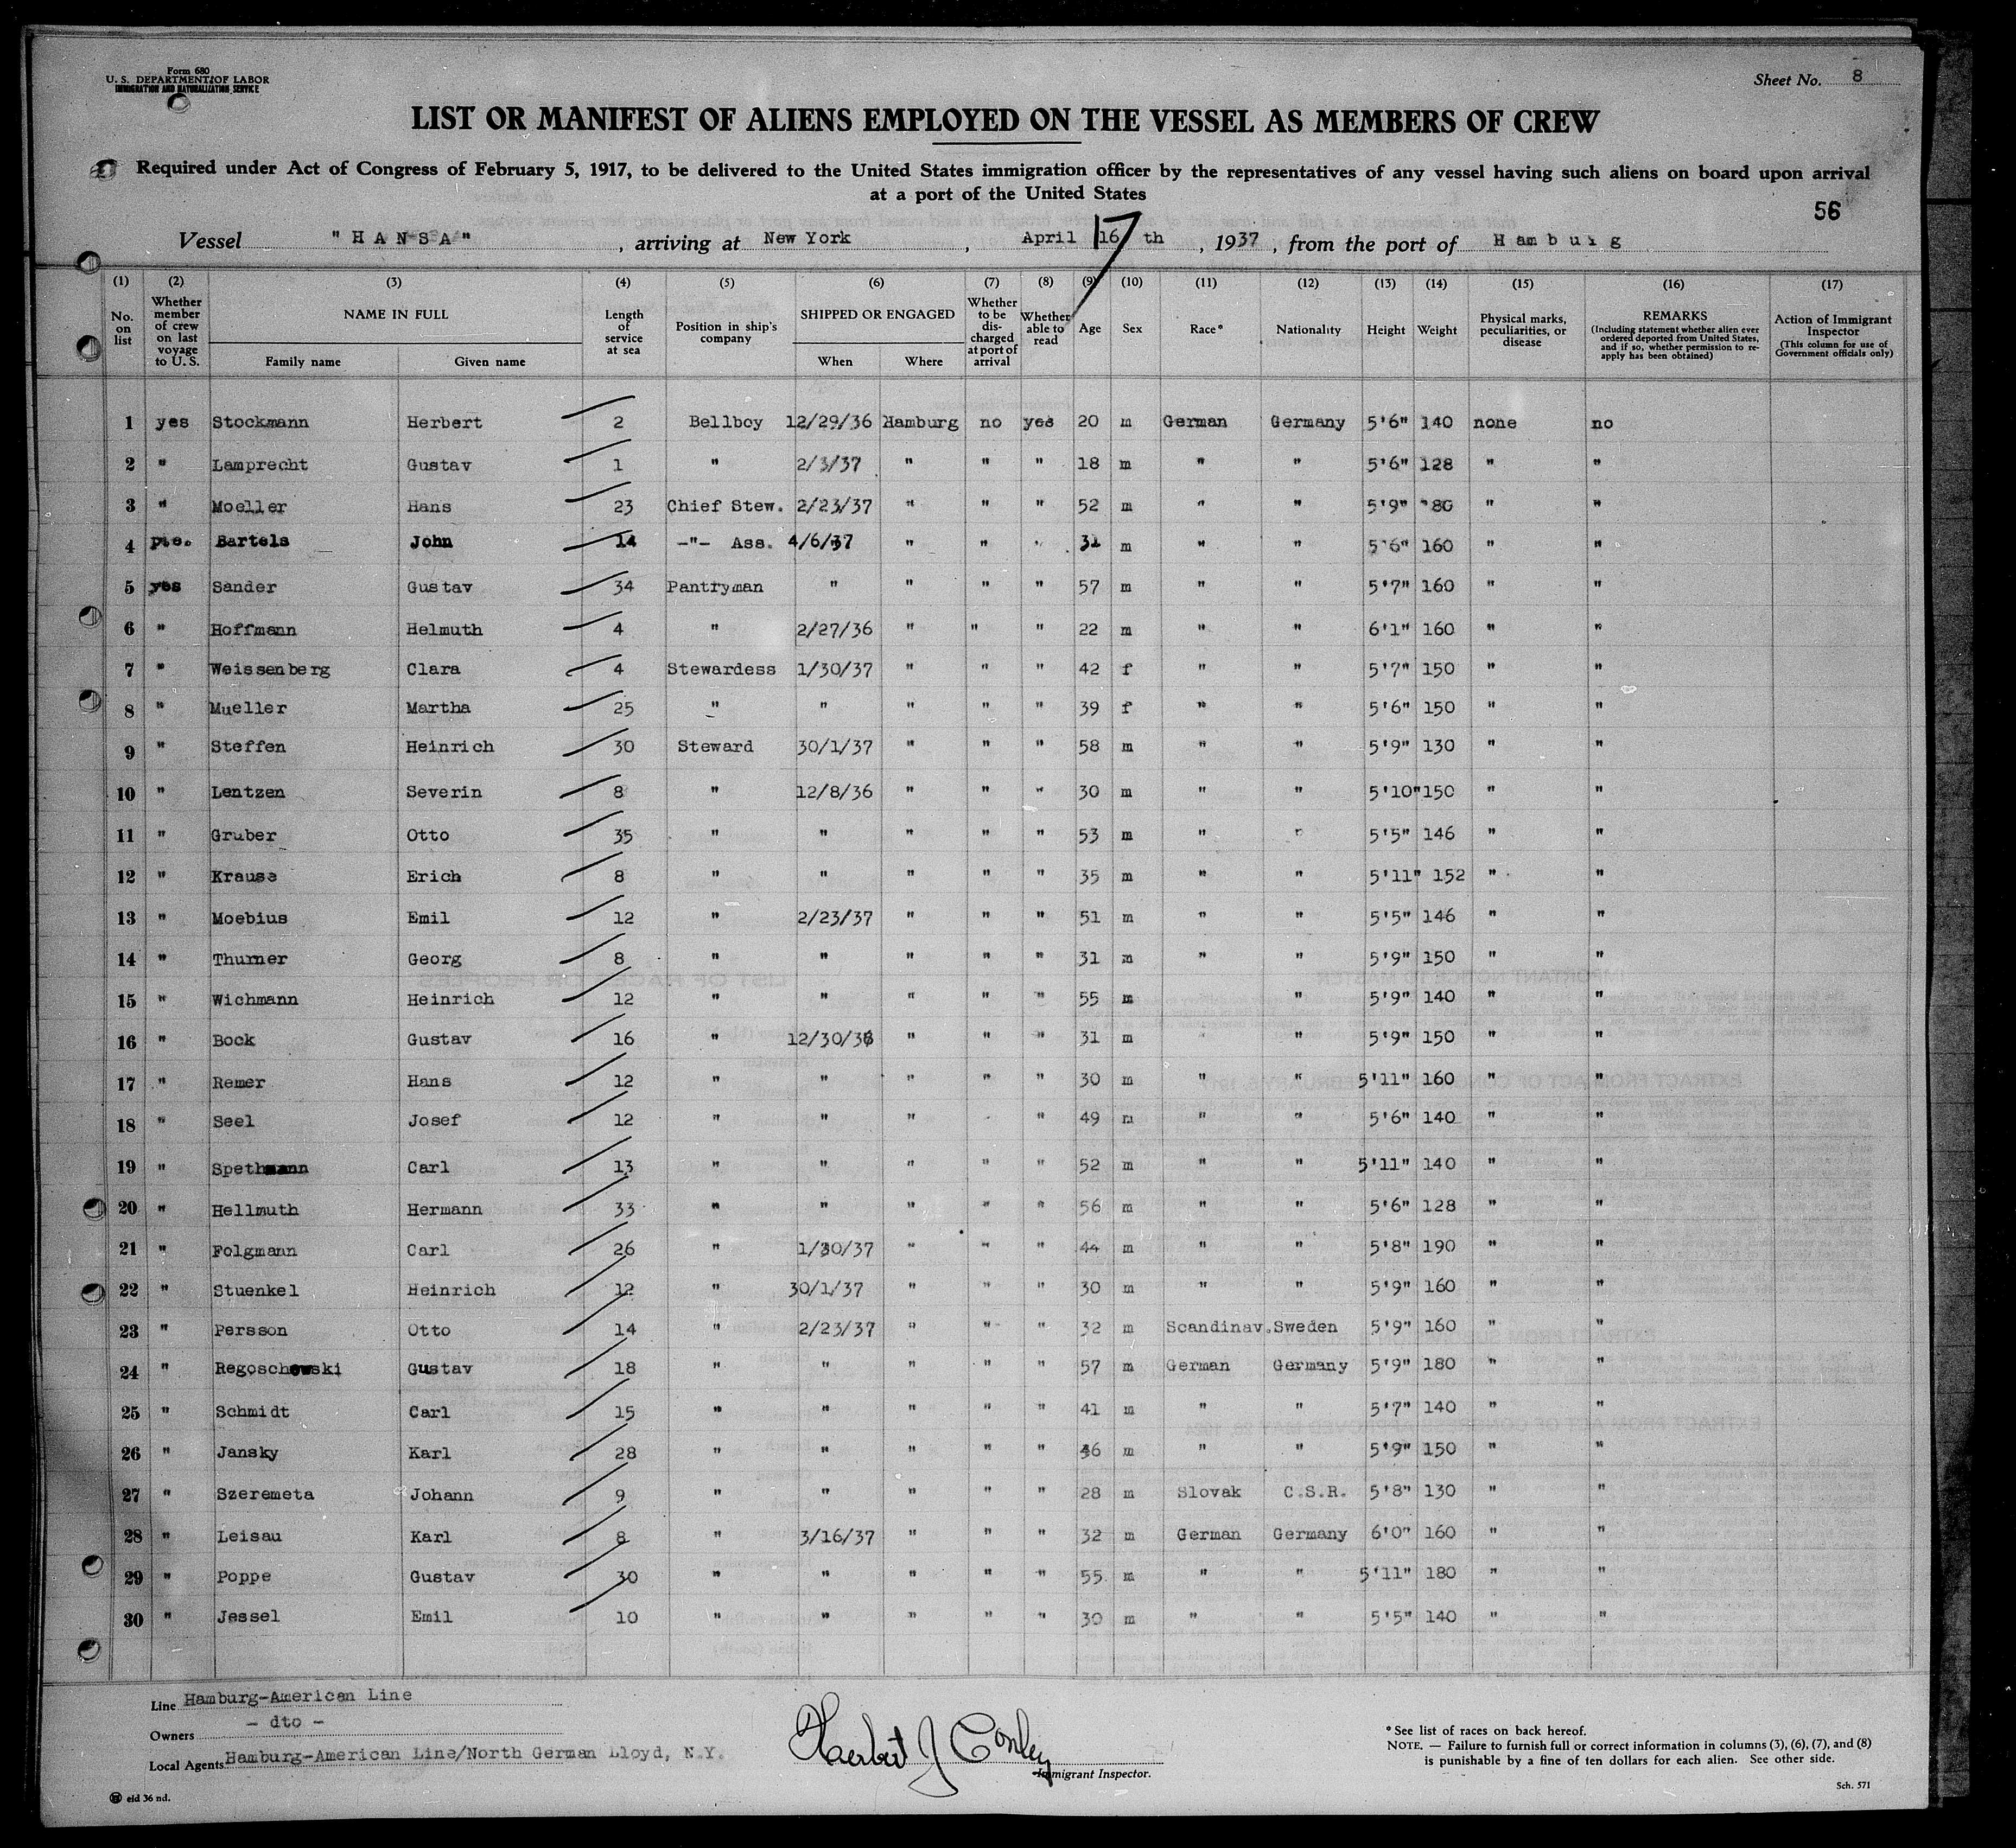 Form 680
U. S. DEPARTMENT OF LABOR
IMMIGRATION AND NATURALIZATION SERVICE
Sheet No. 8
LIST OR MANIFEST OF ALIENS EMPLOYED ON THE VESSEL AS MEMBERS OF CREW
Required under Act of Congress of February 5, 1917, to be delivered to the United States immigration officer by the representatives of any vessel having such aliens on board upon arrival
at a port of the United States
56
Vessel "HANSA", arriving at New York, April 16 17 th, 1937, from the port of Hamburg
(1) (2) (3) (4) (5) (6) (7) (8) (9) (10) (11) (12) (13) (14) (15) (16) (17)
No. on list
Whether member of crew on last voyage to U. S.
NAME IN FULL
Family name
Given name
Length of service at sea
Position in ship's company
SHIPPED OR ENGAGED
When
Where
Whether to be discharged at port of arrival
Whether able to read
Age
Sex
Race*
Nationality
Height
Weight
Physical marks, peculiarities, or disease
REMARKS
(Including statement whether alien ever ordered deported from United States, and if so, whether permission to reapply has been obtained)
Action of Immigrant Inspector
(This column for use of Government officials only)
1 yes Stockmann Herbert 2 Bellboy 12/29/36 Hamburg no yes 20 m German Germany 5'6" 140 none no
2 " Lamprecht Gustav 1 " 2/3/37 " " " 18 m " " 5'6" 128 " "
3 " Moeller Hans 23 Chief Stew. 2/23/37 " " " 52 m " " 5'9" 80 " "
4 Bartels John 14 -"- Ass. 4/6/37 " " " 31 m " " 5'6" 160 " "
5 yes Sander Gustav 34 Pantryman " " " " 57 m " " 5'7" 160 " "
6 " Hoffmann Helmuth 4 " 2/27/36 " " " 22 m " " 6'1" 160 " "
7 " Weissenberg Clara 4 Stewardess 1/30/37 " " " 42 f " " 5'7" 150 " "
8 " Mueller Martha 25 " " " " " 39 f " " 5'6" 150 " "
9 " Steffen Heinrich 30 Steward 30/1/37 " " " 58 m " " 5'9" 130 " "
10 " Lentzen Severin 8 " 12/8/36 " " " 30 m " " 5'10" 150 " "
11 " Gruber Otto 35 " " " " " 53 m " " 5'5" 146 " "
12 " Krause Erich 8 " " " " " 35 m " " 5'11" 152 " "
13 " Moebius Emil 12 " 2/23/37 " " " 51 m " " 5'5" 146 " "
14 " Thurner Georg 8 " " " " " 31 m " " 5'9" 150 " "
15 " Wichmann Heinrich 12 " " " " " 55 m " 5'9" 140 " "
16 " Bock Gustav 16 " 12/30/36 " " " 31 m " " 5'9" 150 " "
17 " Remer Hans 12 " " " " " 30 m " " 5'11" 160 " "
18 " Seel Josef 12 " " " " " 49 m " " 5'6" 140 " "
19 " Spethmann Carl 13 " " " " " 52 m " " 5'11" 140 " "
20 " Hellmuth Hermann 33 " " " " " 56 m " " 5'6" 128 " "
21 " Folgmann Carl 26 " 1/30/37 " " " 44 m " " 5'8" 190 " "
22 " Stuenkel Heinrich 12 " 30/1/37 " " " 30 m " " 5'9" 160 " "
23 " Persson Otto 14 " 2/23/37 " " " 32 m Scandinav. Sweden 5'9" 160 " "
24 " Regoschewski Gustav 18 " " " " " 57 m German Germany 5'9" 180 " "
25 " Schmidt Carl 15 " " " " " 41 m " " 5'7" 140 " "
26 " Jansky Karl 28 " " " " " 46 m " " 5'9" 150 " "
27 " Szeremeta Johann 9 " " " " " 28 m Slovak C.S.R. 5'8" 130 " "
28 " Leisau Karl 8 " 3/16/37 " " " 32 m German Germany 6'0" 160 " "
29 " Poppe Gustav 30 " " " " " 55 m " " 5'11" 180 " "
30 " Jessel Emil 10 " " " " " 30 m " " 5'5" 140 " "
Line Hamburg-American Line
Owners - dto -
Local Agents Hamburg-American Line/North German Lloyd, N.Y.
Herbert J Conley
Immigrant Inspector.
*See list of races on back hereof.
NOTE. — Failure to furnish full or correct information in columns (3), (6), (7), and (8)
is punishable by a fine of ten dollars for each alien. See other side.
eld 36 nd.
Sch. 571